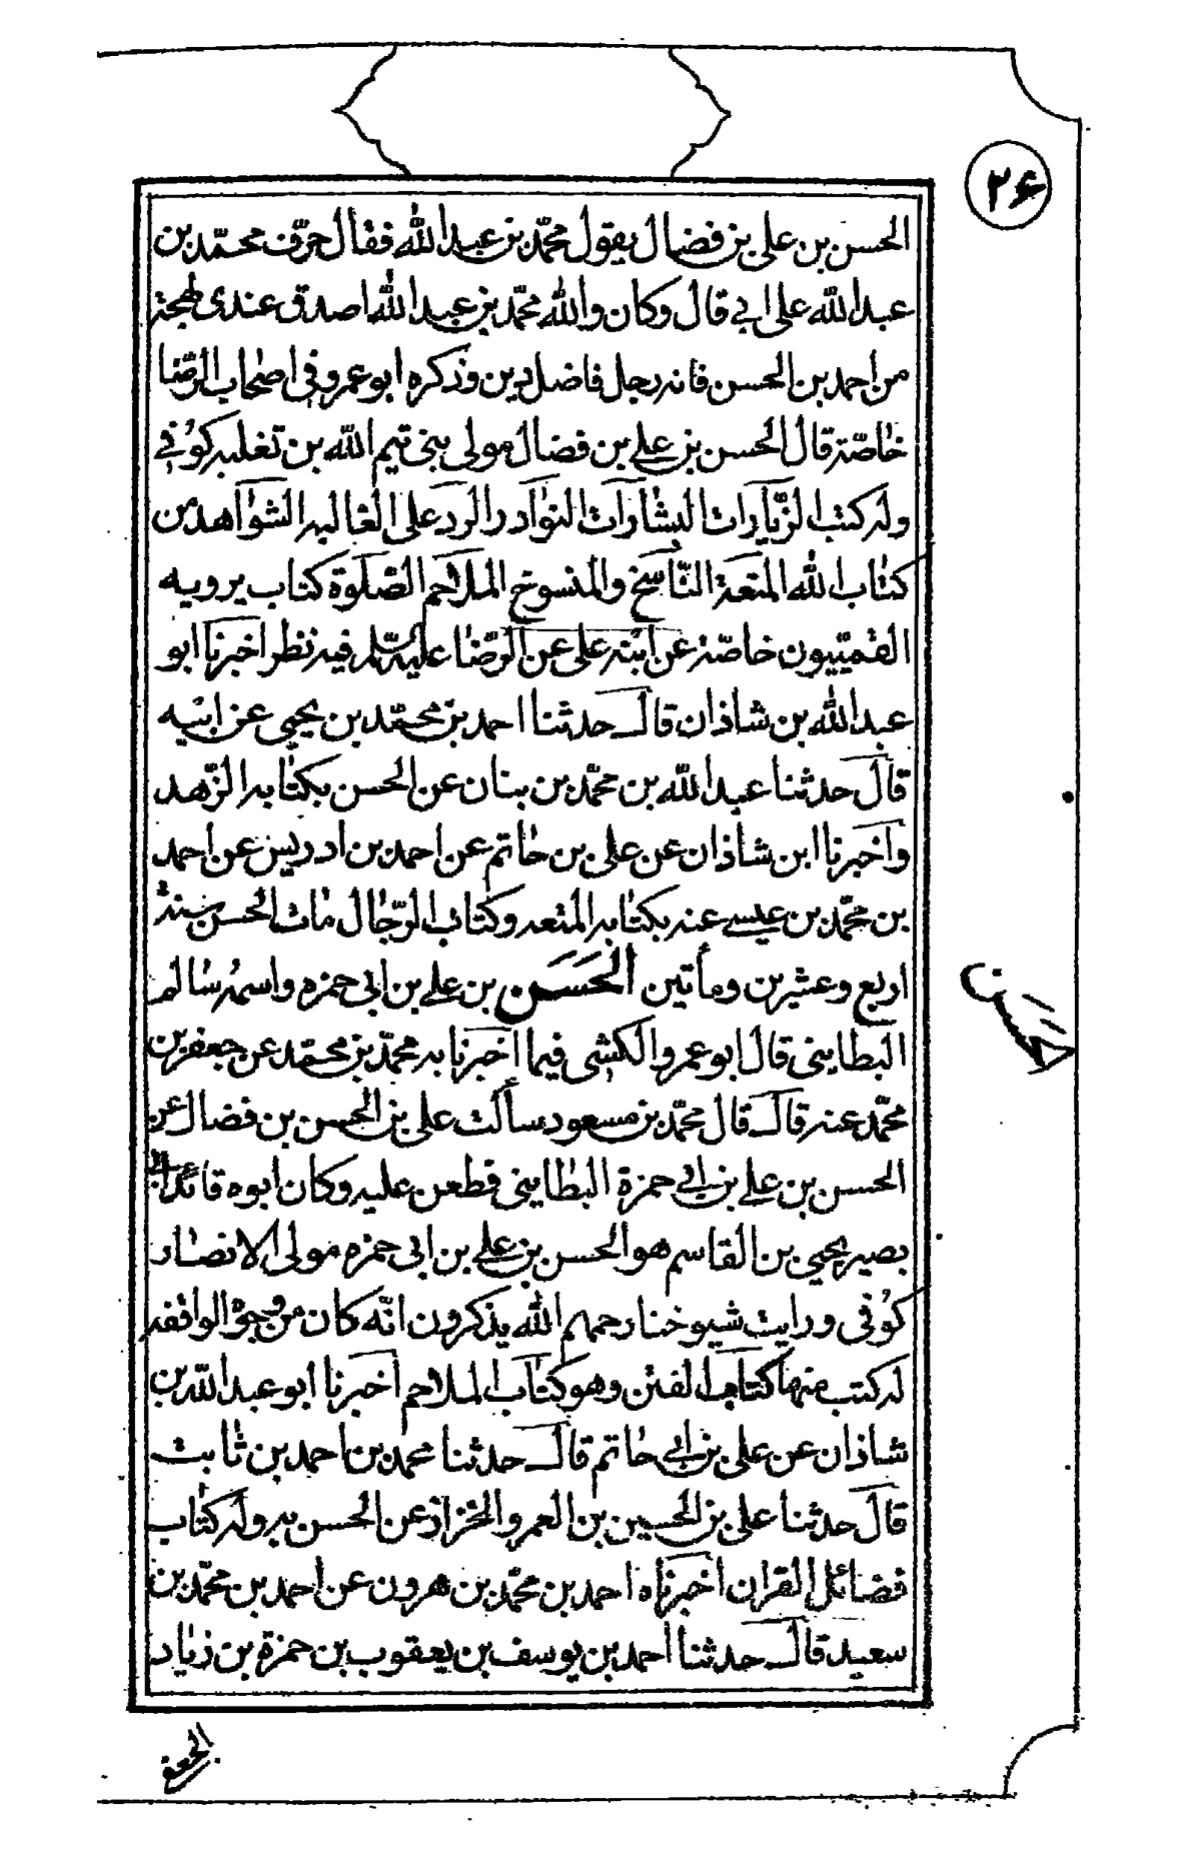 ۲۶
الحسن بن علی بن فضال یقول محمّد بن عبد الله فقال حرّف محمّد بن
عبد الله علی ابی قال وکان والله محمّد بن عبد الله اصدق عندی لهجة
من احمد بن الحسن فانه رجل فاضل دین وذکره ابو عمرو فی اصحاب الرّضا
خاصّة قال الحسن بن علی بن فضال مولی بنی تیم الله بن تغلبه کوفی
وله کتب الزّیارات البشارات النوادر الرد علی الغالیه الشواهد من
کتاب الله المتعة النّاسخ والمنسوخ الملاحم الصّلوة کتاب یرویه
القمیّیون خاصّة عن ابنه علی عن الرّضا علیه السّلم فیه نظر اخبرنا ابو
عبد الله بن شاذان قال حدثنا احمد بن محمّد بن یحیی عن ابیه
قال حدثنا عبد الله بن محمّد بن بنان عن الحسن بکتابه الزّهد
واخبرنا ابن شاذان عن علی بن حاتم عن احمد بن ادریس عن احمد
بن محمّد بن عیسی عنه بکتابه المتعه وکتاب الرّجال مات الحسن سنة
اربع وعشرین ومأتین الحَسَن بن علی بن ابی حمزه واسمه سالم
البطاینی قال ابو عمرو الکشی فیما اخبرنا به محمّد بن محمّد عن جعفر بن
محمّد عنه قال قال محمّد بن مسعود سألت علی بن الحسن بن فضال عن
الحسن بن علی بن ابی حمزة البطاینی فطعن علیه وکان ابوه قائد ابی
بصیر یحیی بن القاسم هو الحسن بن علی بن ابی حمزه مولی الانصار
کوفی ورایت شیوخنا رحمهم الله یذکرون انّه کان من وجوه الواقفه
له کتب منها کتاب الفتن وهو کتاب الملاحم اخبرنا ابو عبد الله بن
شاذان عن علی بن ابی حاتم قال حدثنا محمد بن احمد بن ثابت
قال حدثنا علی بن الحسین بن العمرو الخزاز عن الحسن به وله کتاب
فضائل القران اخبرناه احمد بن محمّد بن هرون عن احمد بن محمّد بن
سعید قال حدثنا احمد بن یوسف بن یعقوب بن حمزة بن زیاد
حَسَن
الجعفی